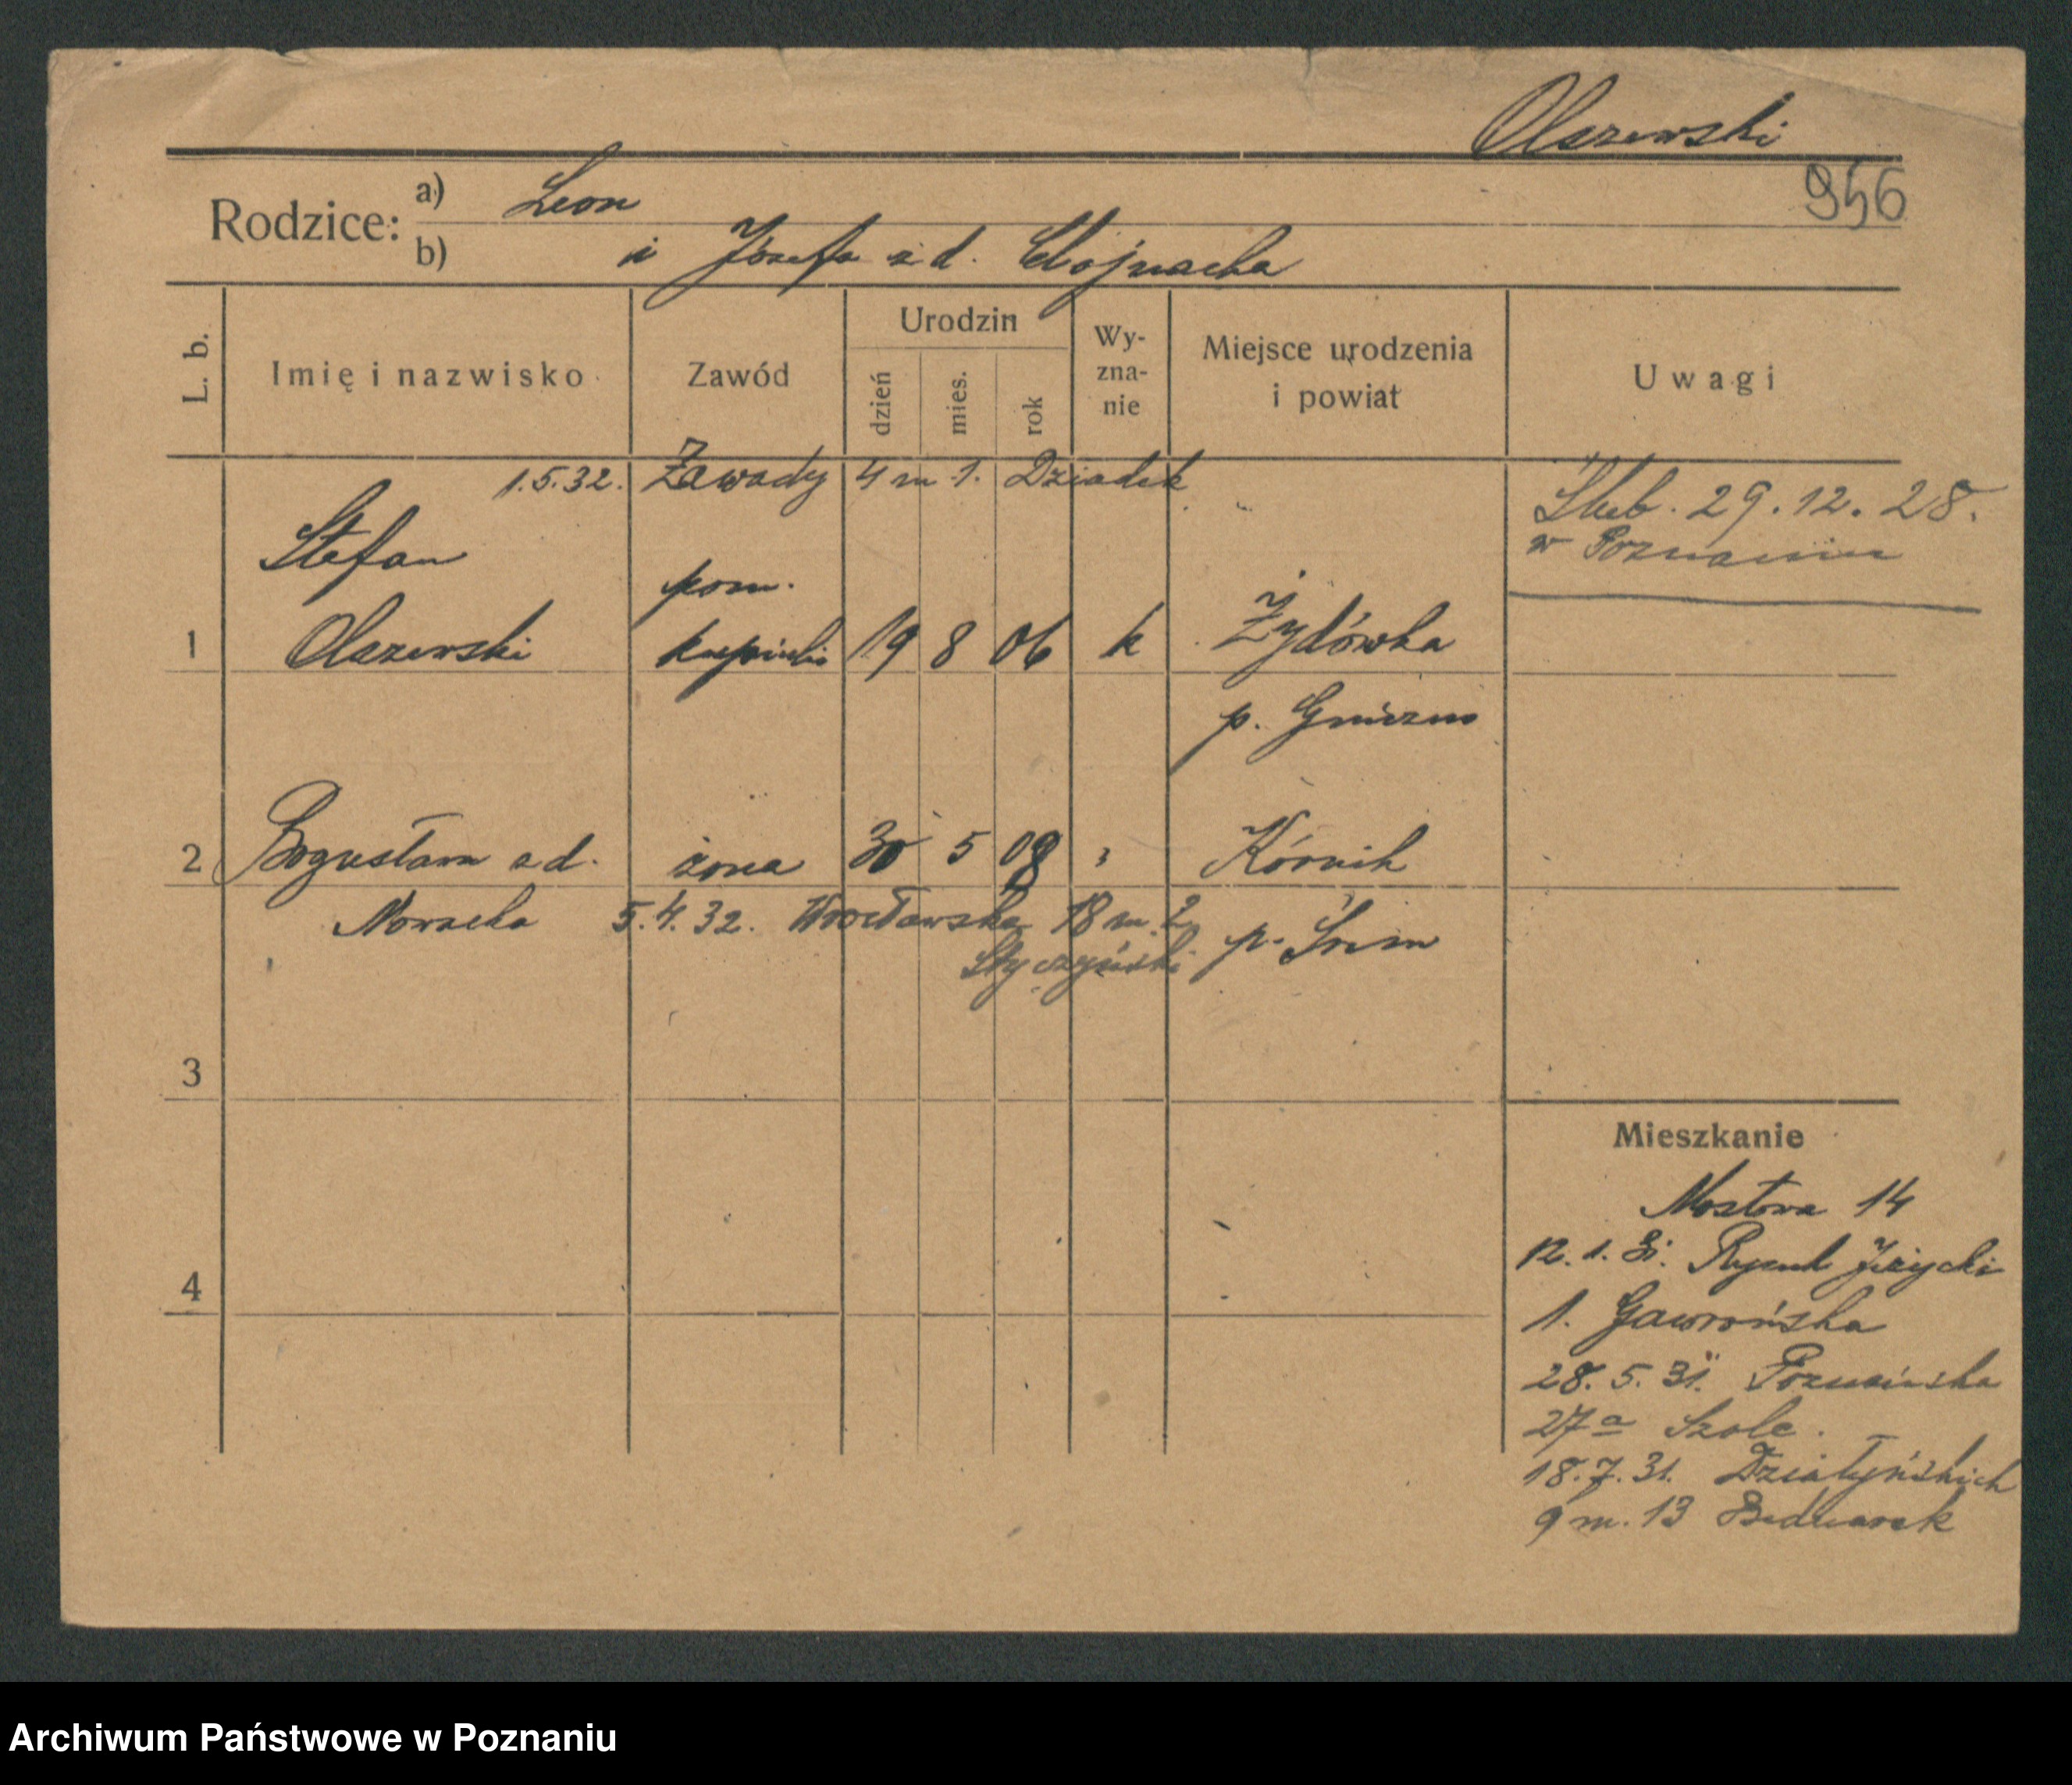 Olszewski
956
Rodzice: a) Leon
b) i Józefa z d. Wojnacka
L. b.
Imię i nazwisko
Zawód
Urodzin
dzień
mies.
rok
Wy-
zna-
nie
Miejsce urodzenia
i powiat
Uwagi
1.5.32. Zawady 4 m 1. Dziadek
Ślub. 29.12.28.
w Poznaniu
Stefan
pom.
1 Olszewski kupiecki 19 8 06 k Żydówka
p. Gniezno
2 Bogusława z d. żona 30 5 08 " Kórnik
Nowacka 5.4.32. Wrocławska 18 m. 2
Styczyński
p. Śrem
3
4
Mieszkanie
Mostowa 14
12.1.31. Rynek Jeżycki
1. Gawrońska
28.5.31. Poznańska
27a Szole.
18.7.31. Działyńskich
9 m. 13 Bednarek
Archiwum Państwowe w Poznaniu